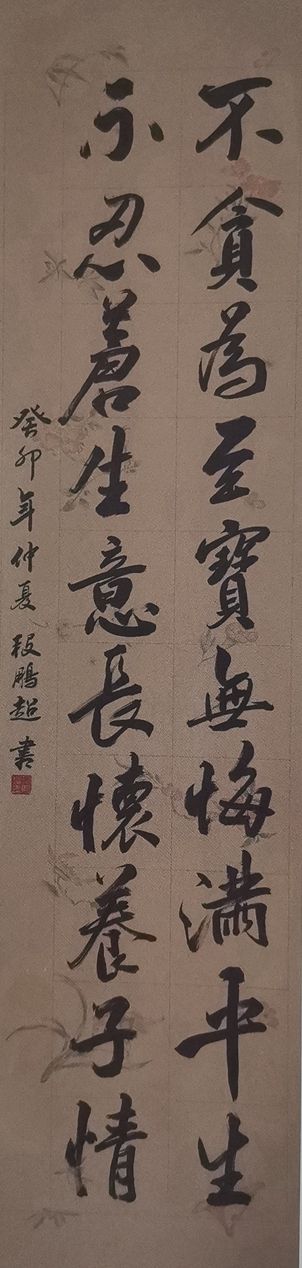 不貪為至寶無悔滿平生
不忍蒼生意長懷養子情
癸卯年仲夏段鵬超書